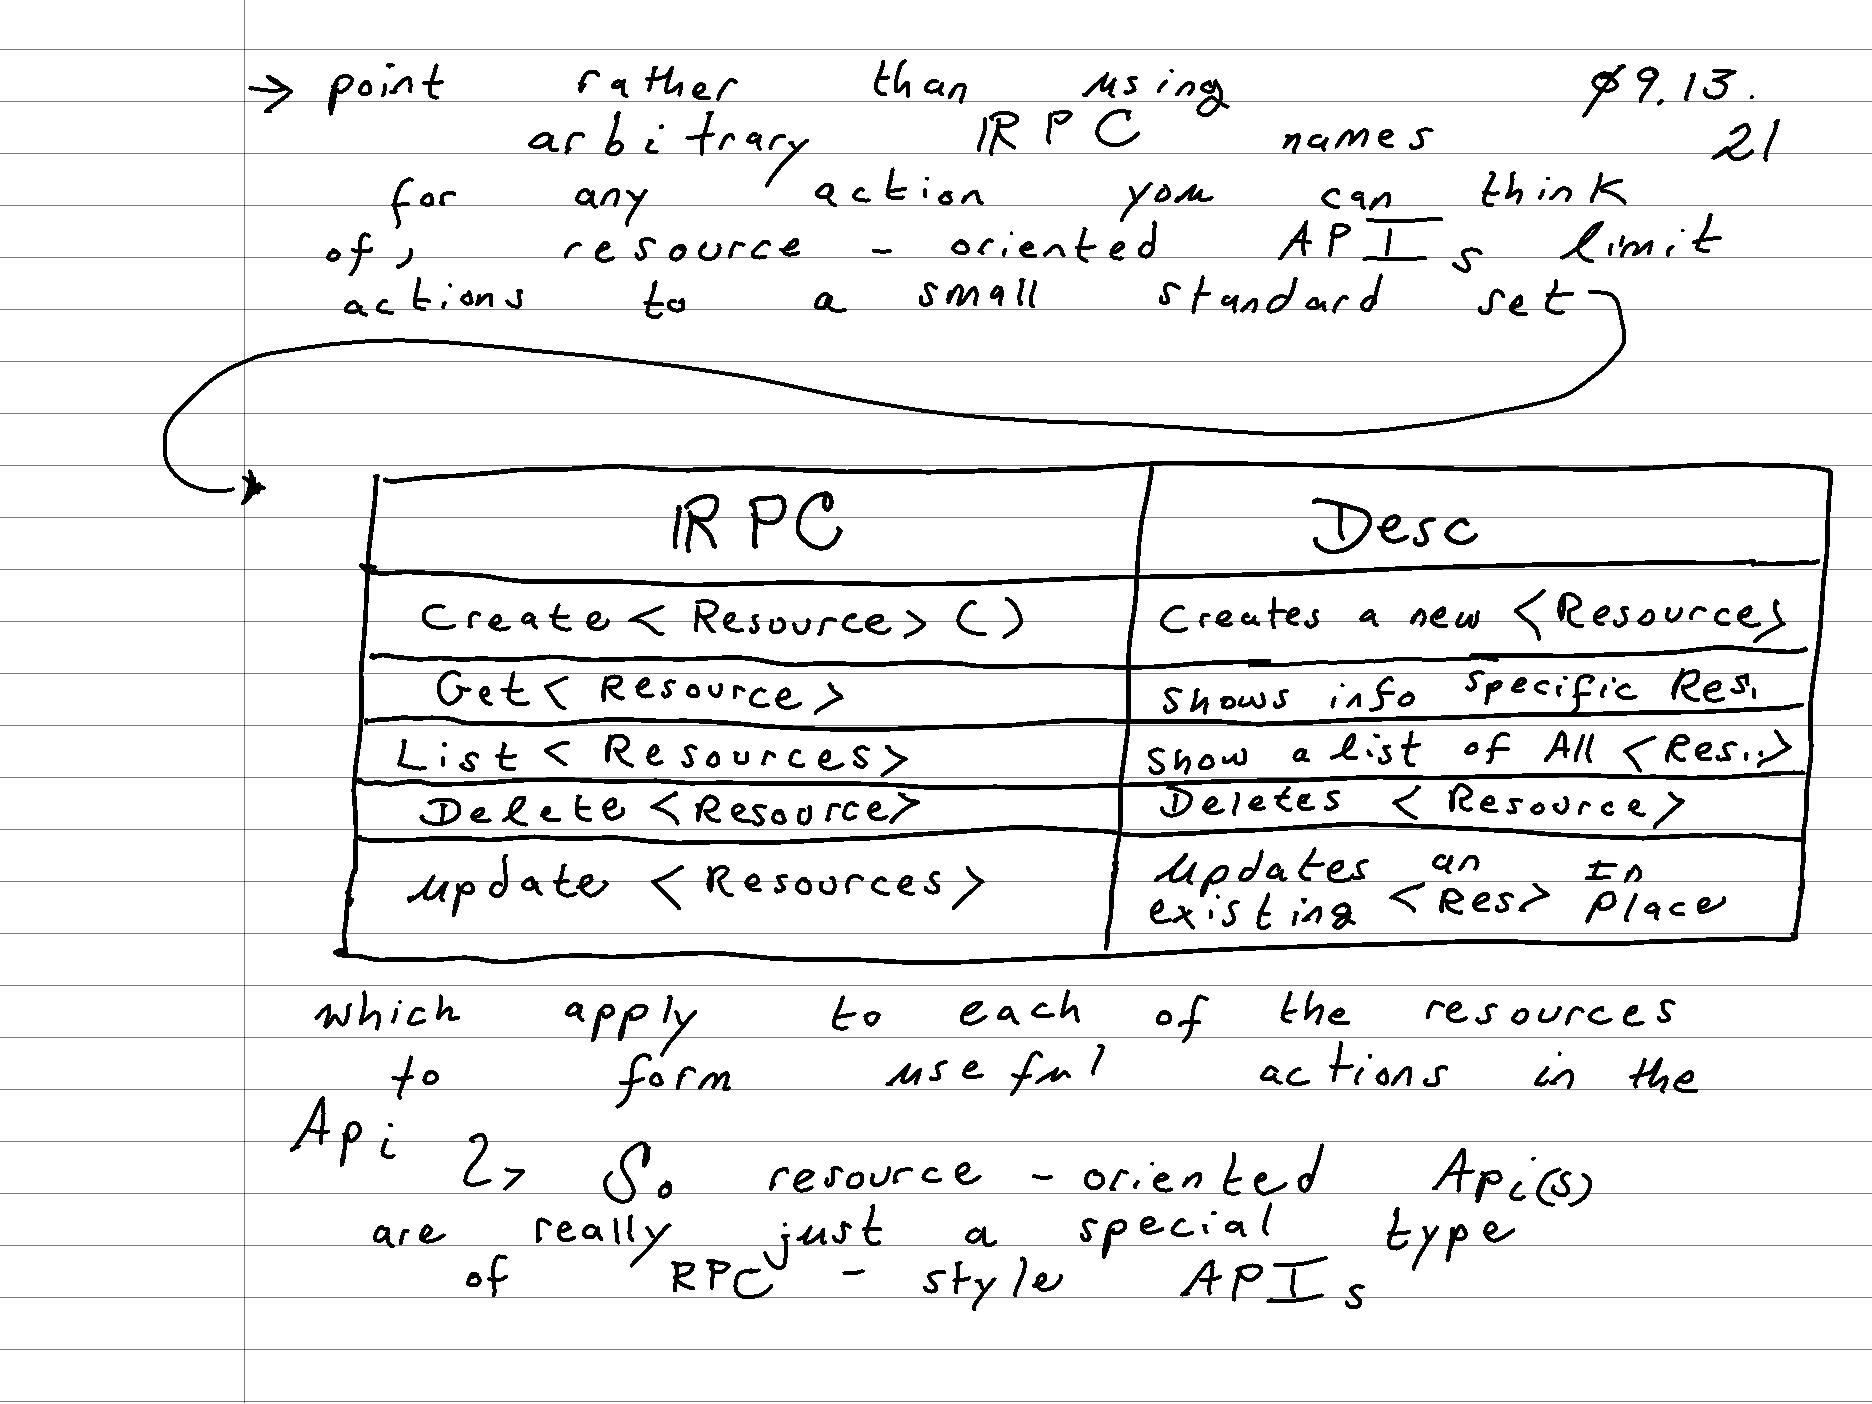 → point rather than using ø9.13.
arbitrary RPC names 21
for any action you can think
of, resource - oriented APIs limit
actions to a small standard set
RPC Desc
Create < Resource > () Creates a new <Resource>
Get < Resource > Shows info specific Res.
List < Resources> Show a list of All <Res..>
Delete <Resource> Deletes < Resource >
update < Resources > updates an existing <Res> In Place
which apply to each of the resources
to form useful actions in the
Api
↳ So resource - oriented Api(s)
are really just a special type
of RPC - style APIs